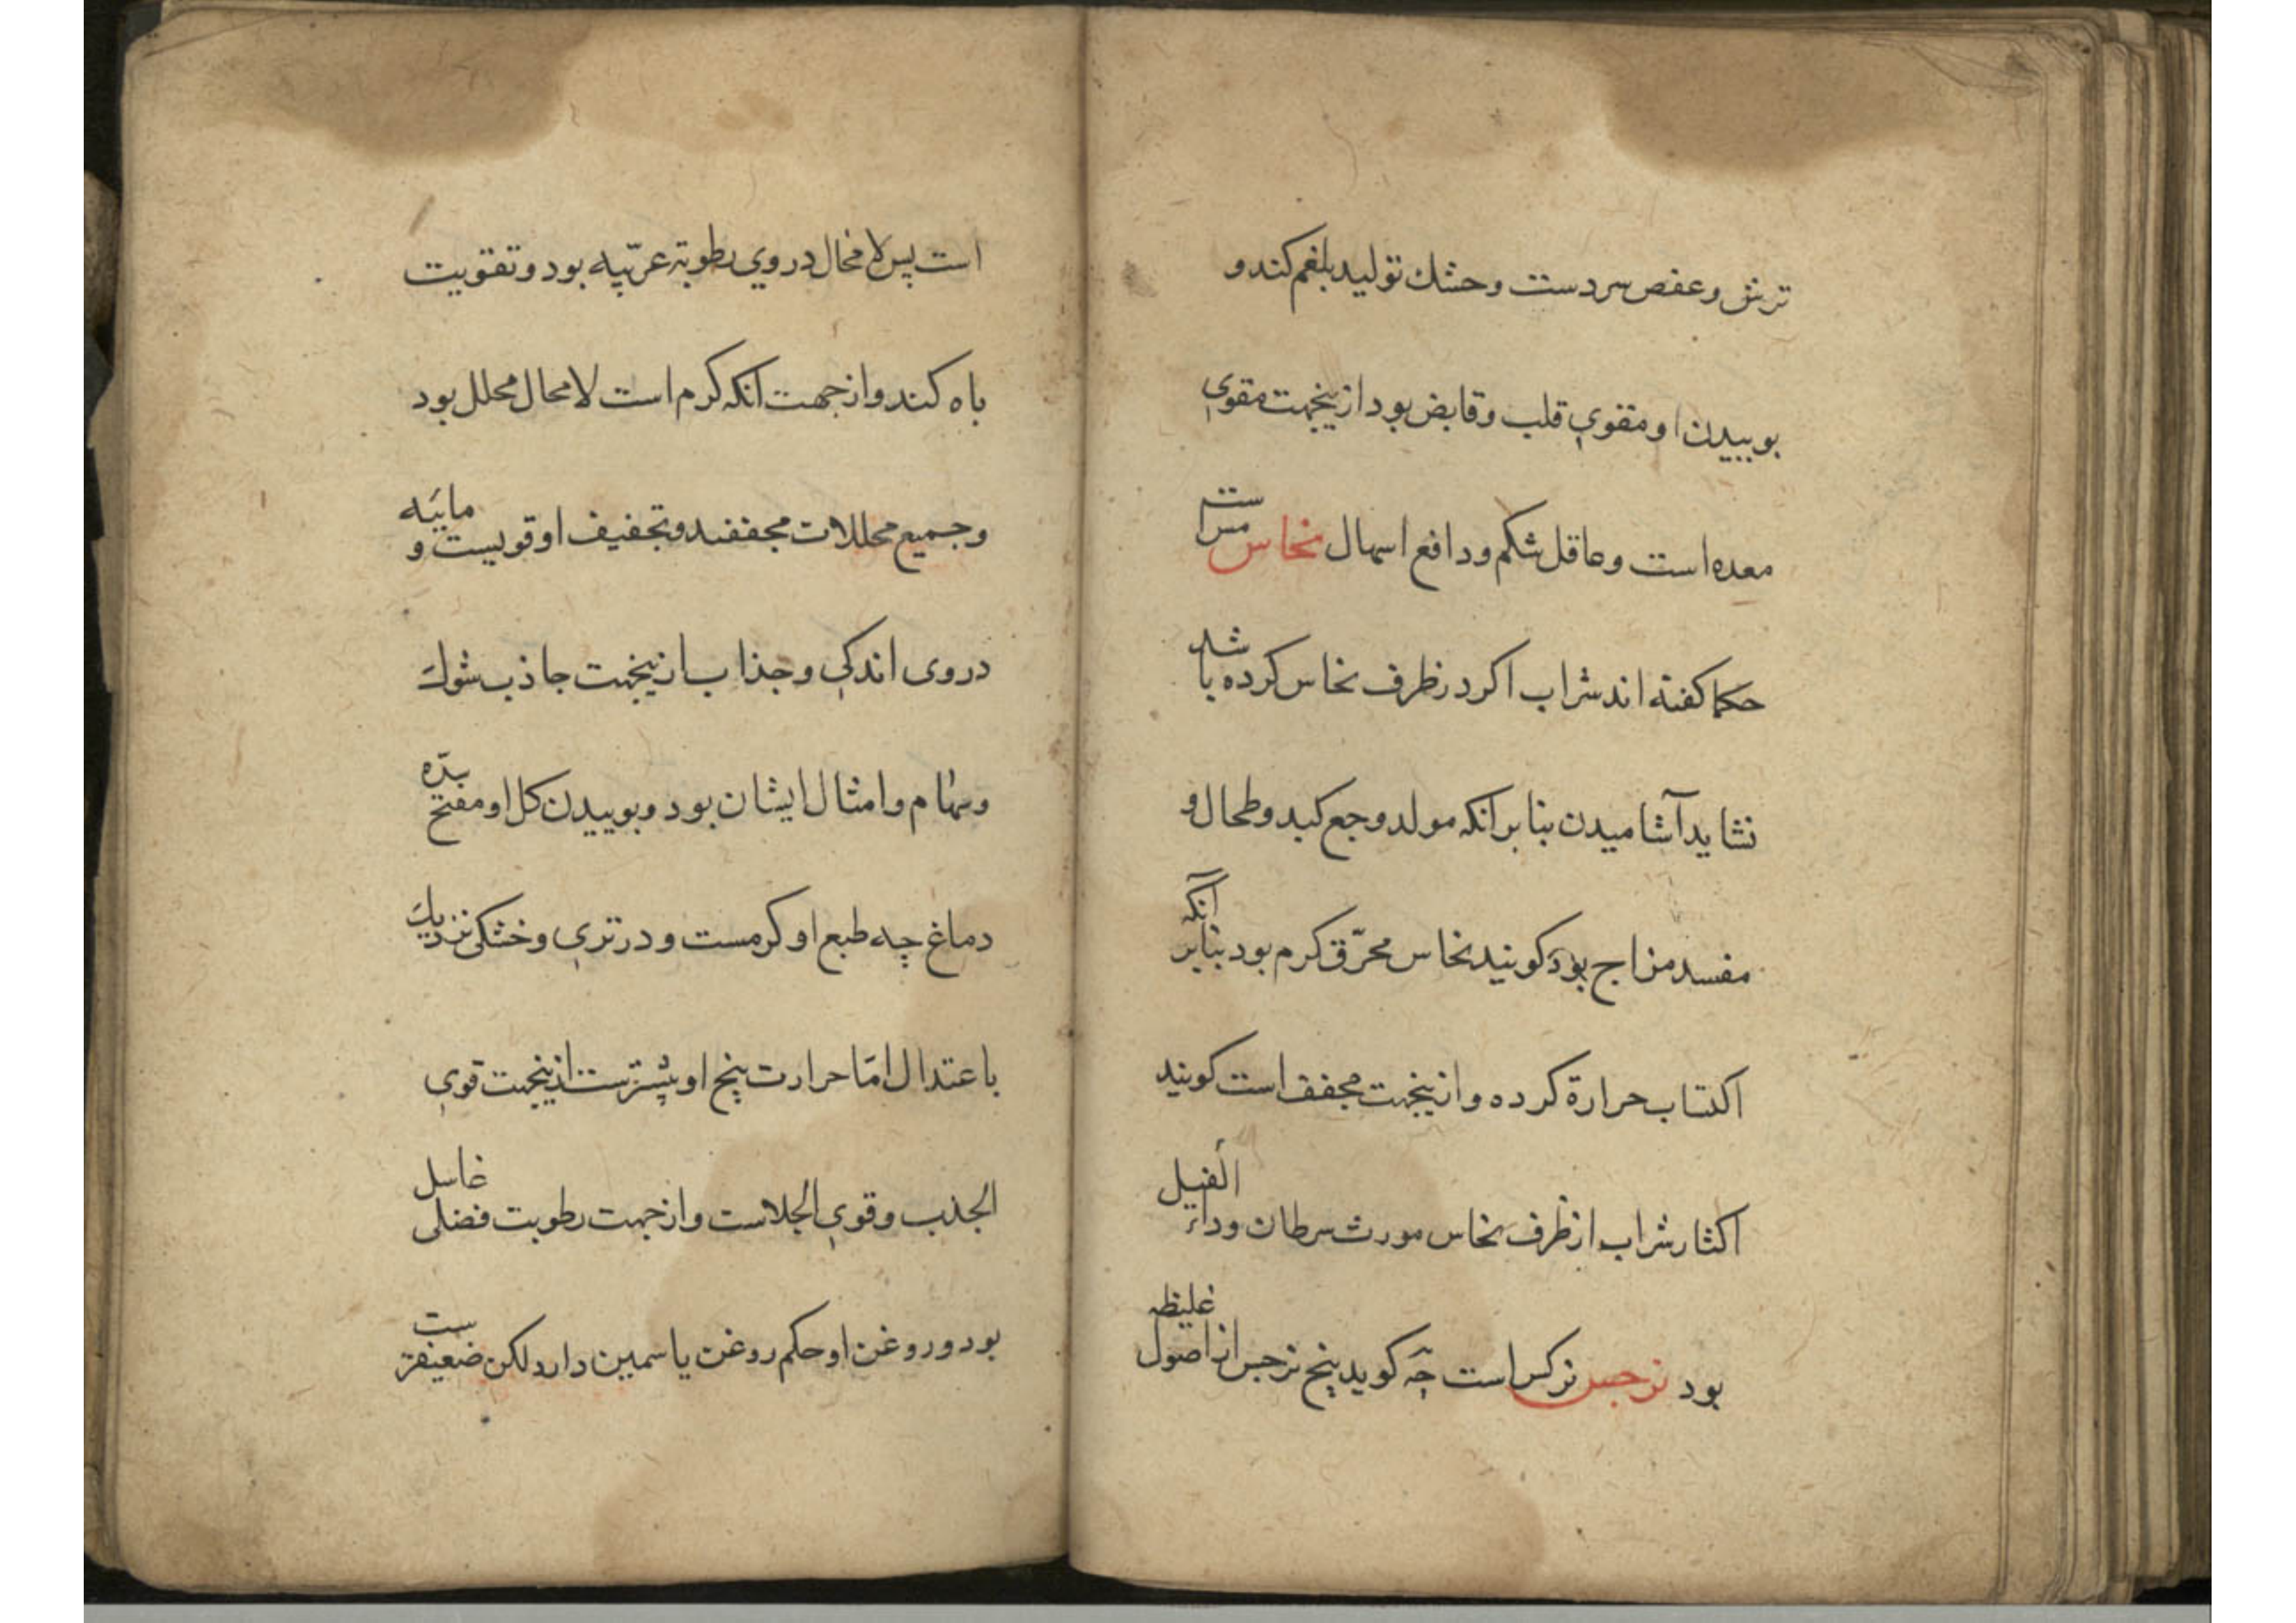 ترش و عفص سردست و خشك تولید بلغم کند و
بوییدن او مقوي قلب و قابض بود ازینجهت مقوي
معده است و عاقل شکم و دافع اسهال نخاس مس است
حکما کفته اند شراب اکر در ظرف نخاس کرده باشد
نشاید آشامیدن بنا بر انکه مولد وجع کبد و طحال و
مفسد مزاج بود کویند نخاس محرّق کرم بود بنابر آنکه
اکتساب حرارة کرده و ازینجهت مجفف است کویند
اکثار شراب از ظرف نخاس مورث سرطان و داء الفیل
بود نرجس نرکس است چه کوید بیخ نرجس از اصول غلیظه
است پس لا مخال در وي رطوبة عرّبیه بود و تقویت
باه کند و از جهت انکه کرم است لا محال محلل بود
و جمیع محللات مجففند و تجفیف او قویست و مایَیه
در وی اندکي و جذاب ازینجهت جاذب شوك
و سهام و امثال ایشان بود و بوییدن کل او مفتح سدّه
دماغ چه طبع او کرمست و در تري و خشکی نزدیك
با عتدال امّا حرارت بیخ او بیشترست ازینجهت قوي
الجذب و قوي الجلاست و از جهت رطوبت فضلی غاسل
بود و روغن او حکم روغن یاسمین دارد لکن ضعیفترست